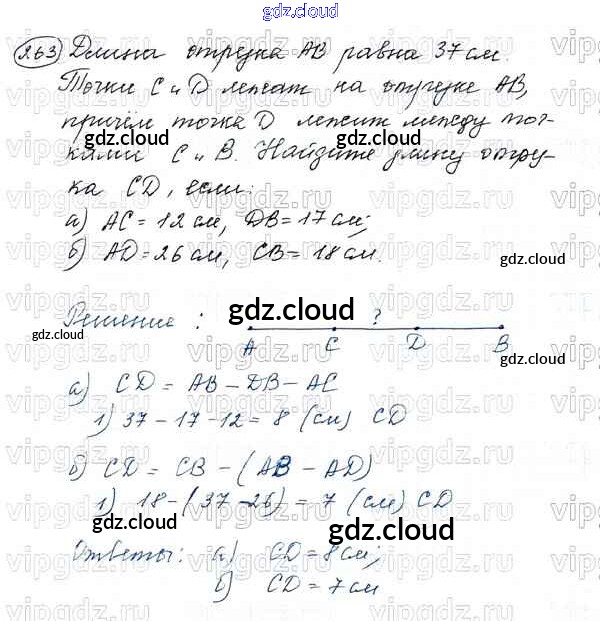 gdz.cloud
263 Длина отрезка АВ равна 37 см.
Точки С и D лежат на отрезке АВ,
причём точка D лежит между точ-
gdz.cloud gdz.cloud
ками С и В. Найдите длину отрез-
ка CD, если:
а) АС = 12 см, DB = 17 см;
б) AD = 26 см, CB = 18 см.
gdz.cloud
Решение : gdz.cloud ?
gdz.cloud A C D B
gdz.cloud
а) CD = AB − DB − AC
1) 37 − 17 − 12 = 8 (см) CD
б) CD = CB − (AB − AD)
1) 18 − (37 − 26) = 7 (см) CD
gdz.cloud
gdz.cloud
Ответы: а) CD = 8 см;
б) CD = 7 см
vipgdz.ru